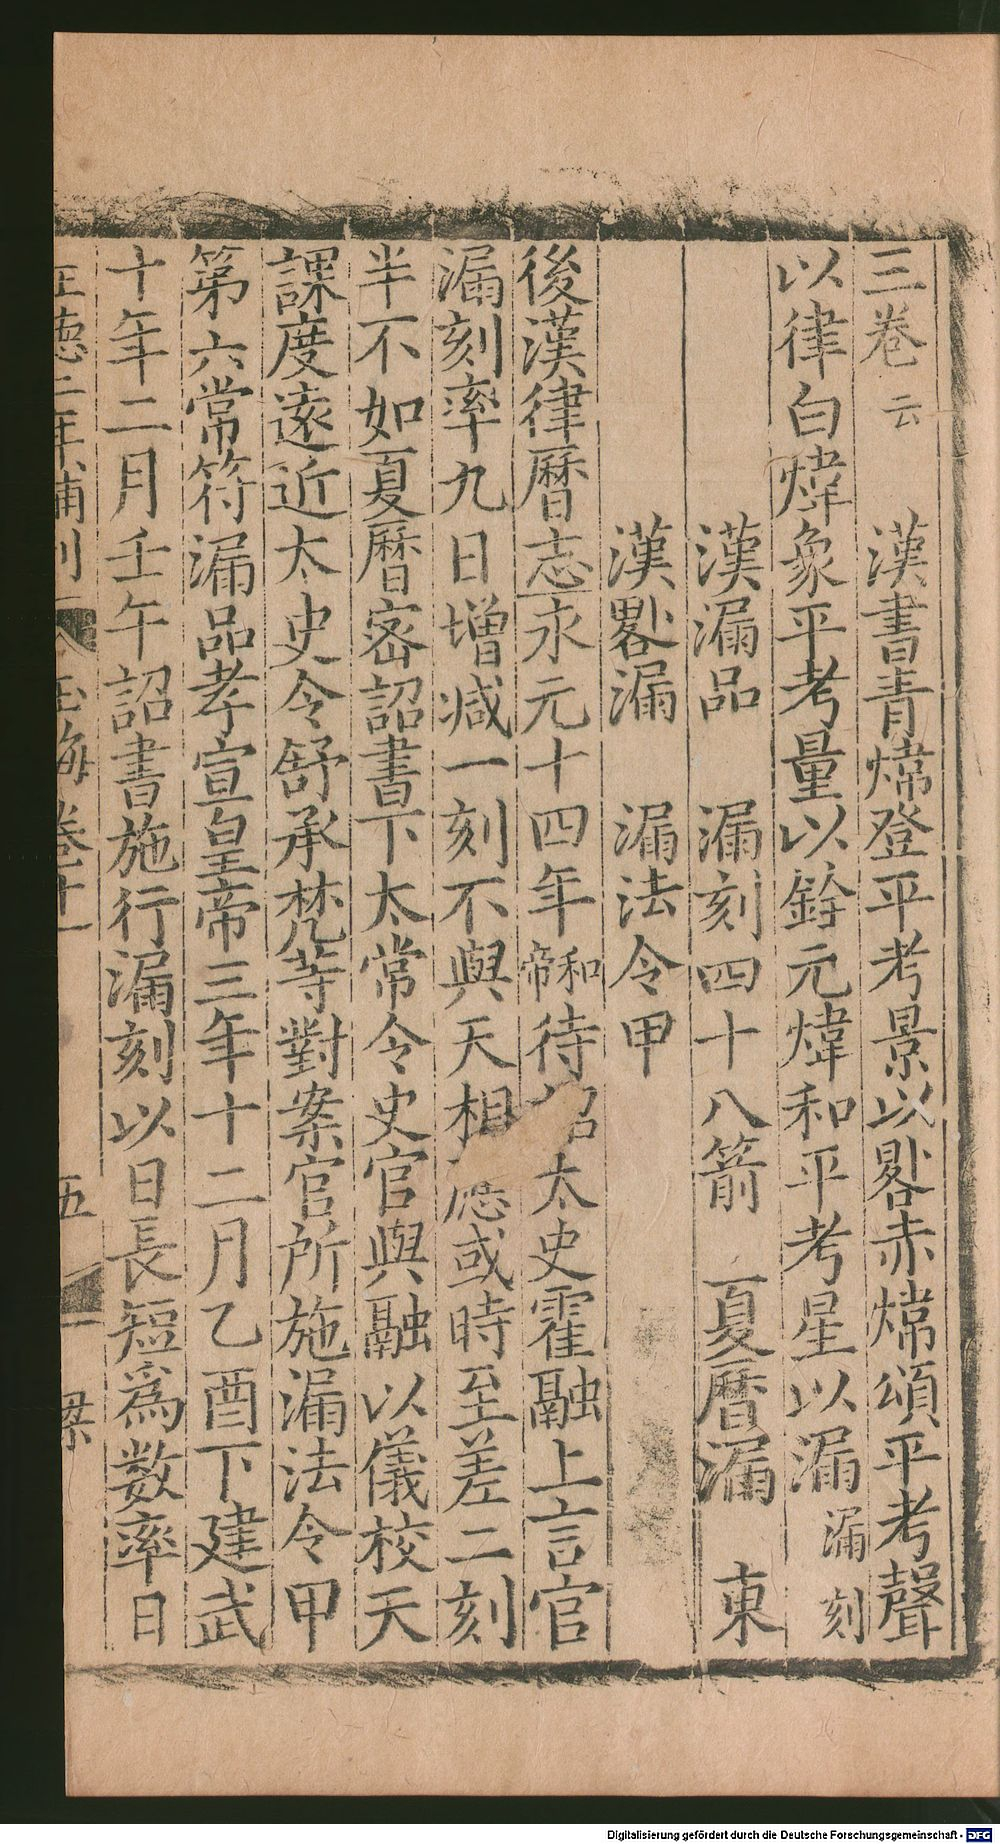 三卷云　漢書青煒登平考景以晷赤煒頌平考聲
以律白煒象平考量以銓元煒和平考星以漏漏刻
漢漏品　漏刻四十八箭　夏曆漏　東
漢晷漏　漏法令甲
後漢律曆志永元十四年和帝待詔太史霍融上言官
漏刻率九日增減一刻不與天相應或時至差二刻
半不如夏曆密詔書下太常令史官與融以儀校天
課度遠近太史令舒承梵等對案官所施漏法令甲
第六常符漏品孝宣皇帝三年十二月乙酉下建武
十年二月壬午詔書施行漏刻以日長短爲數率日
正德二年補刊　玉海卷十一　五　梁
Digitalisierung gefördert durch die Deutsche Forschungsgemeinschaft - DFG